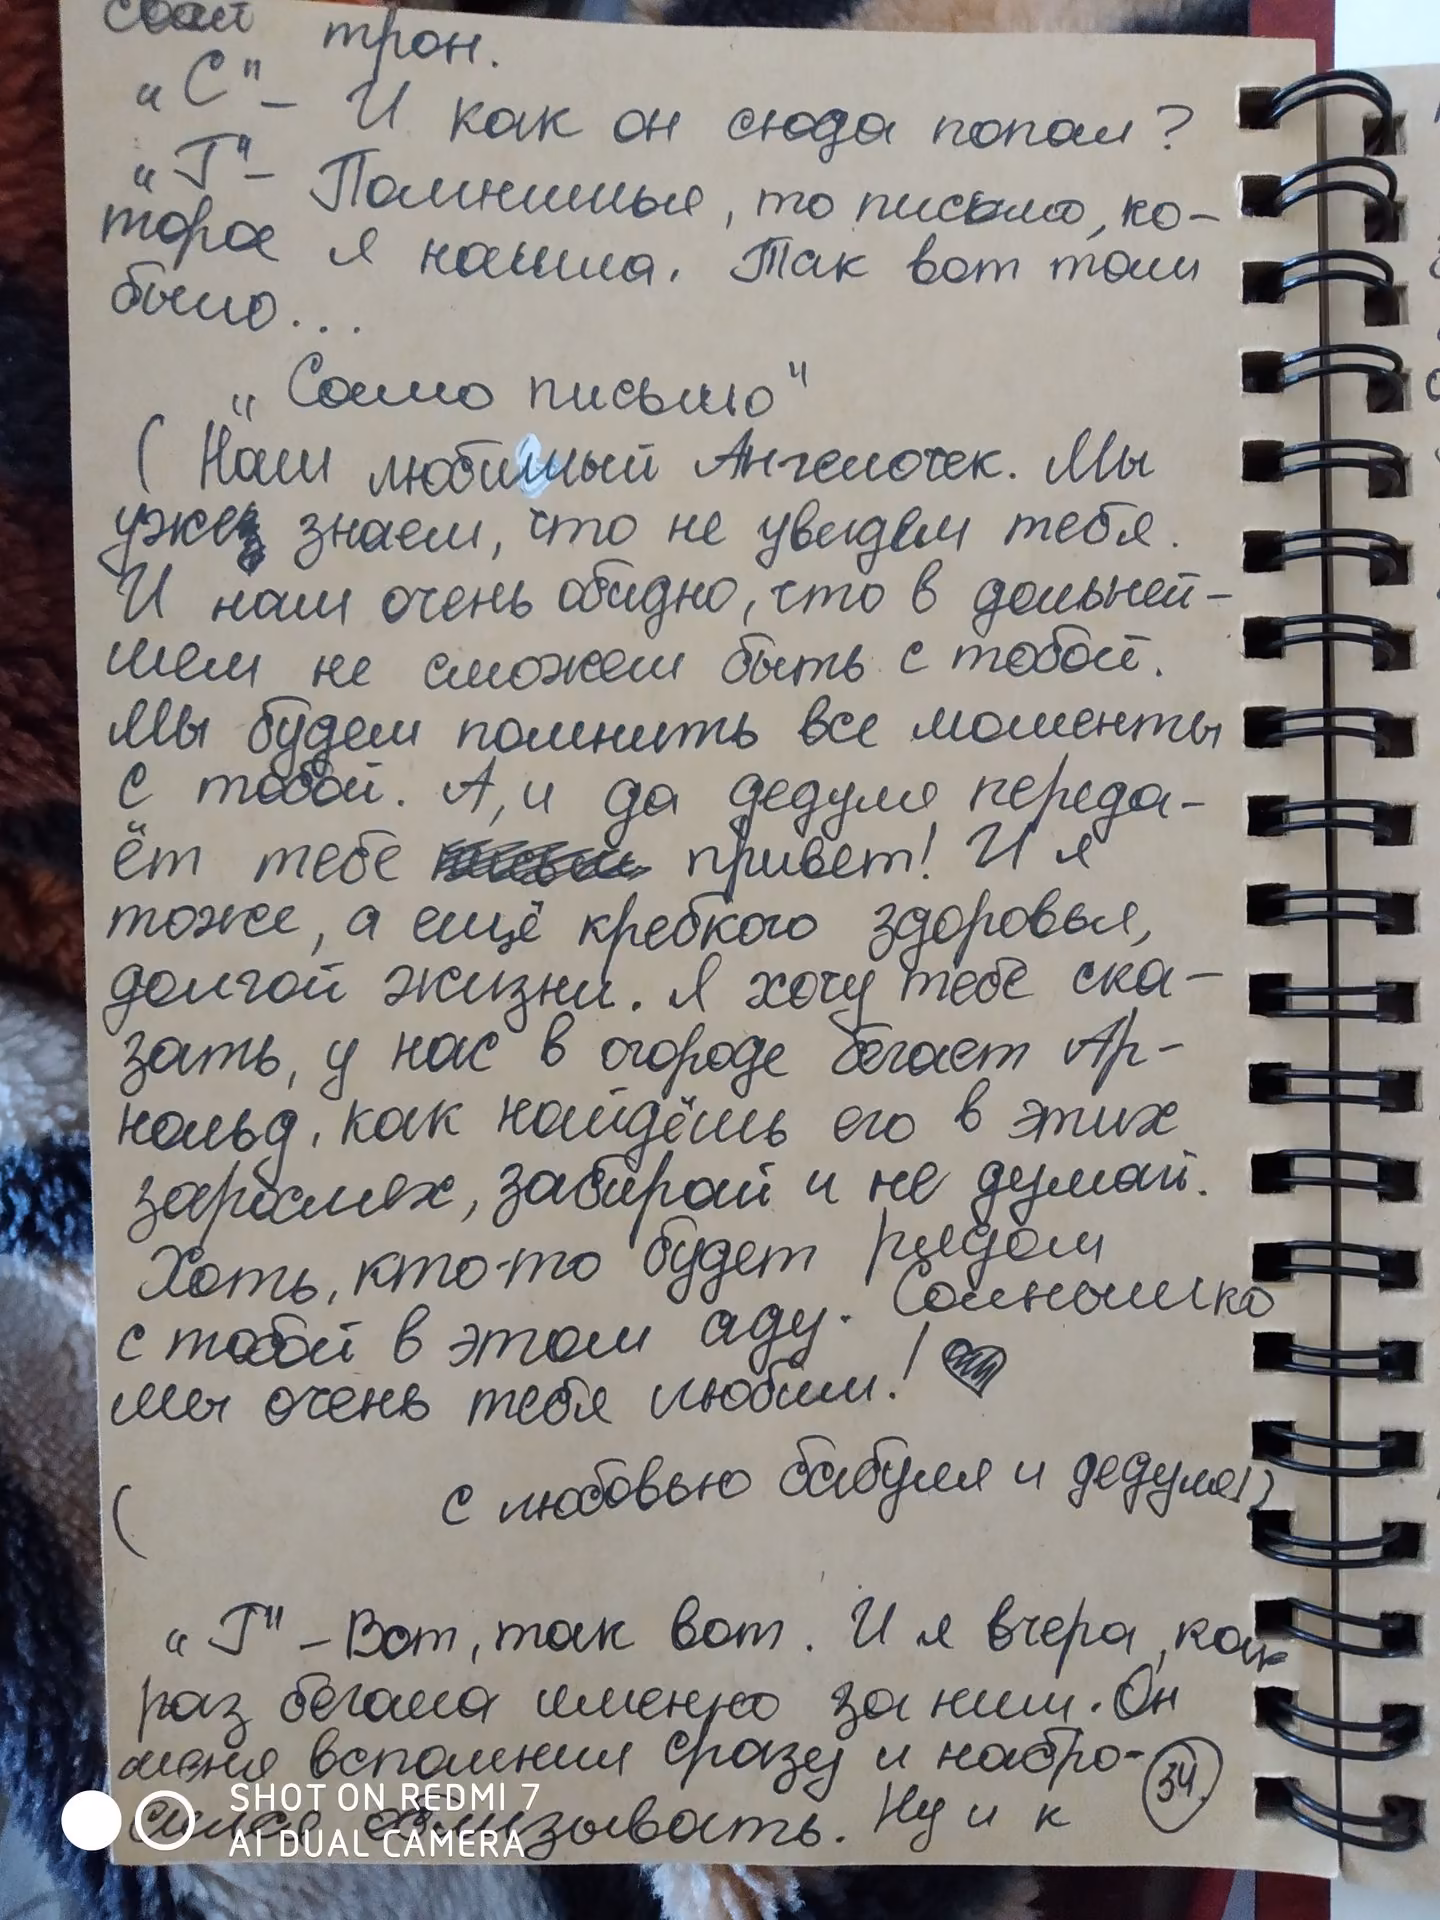 свой трон.
„С" – И как он сюда попал?
„Т" – Помнишье, то письмо, ко-
торое я нашла. Так вот там
было...
„Само письмо"
( Наш любимый Ангелочек. Мы
уже знаем, что не увидем тебя.
И нам очень обидно, что в дальней-
шем не сможем быть с тобой.
Мы будем помнить все моменты
с тобой. А, и да дедуля переда-
ёт тебе привет! И я
тоже, а ещё кребкого здоровья,
долгой жизни. Я хочу тебе ска-
зать, у нас в огороде бегает Ар-
нольд, как найдёшь его в этих
зарослях, забирай и не думай.
Хоть, кто-то будет рядом
с тобой в этом аду. Солнышко
мы очень тебя любим!
( с любовью бабуля и дедуля!)
„Т" – Вот, так вот. И я вчера, как
раз бегала именно за ним. Он
меня вспомнил сразу и набро-
сился облизывать. Ну и к
34.
SHOT ON REDMI 7
AI DUAL CAMERA